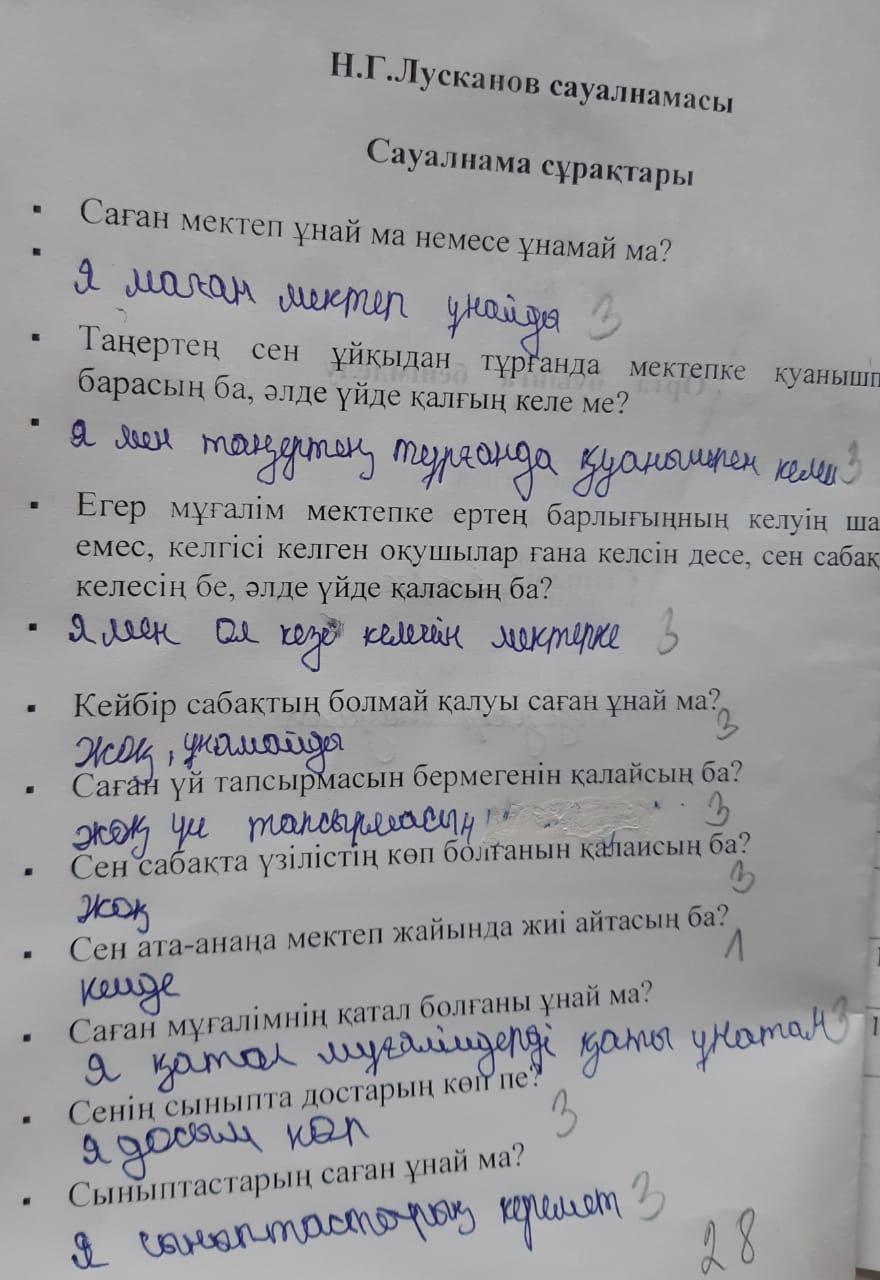 Н.Г.Лусканов сауалнамасы
Сауалнама сұрақтары
Саған мектеп ұнай ма немесе ұнамай ма?
Я маған мектеп ұнайды 3
Таңертең сен ұйқыдан тұрғанда мектепке қуанышп
барасың ба, әлде үйде қалғың келе ме?
Я мен таңертең тұрғанда қуанышпен келем 3
Егер мұғалім мектепке ертең барлығыңның келуің ша
емес, келгісі келген оқушылар ғана келсін десе, сен сабақ
келесің бе, әлде үйде қаласың ба?
Я мен ол кезде келемін мектерке 3
Кейбір сабақтың болмай қалуы саған ұнай ма?
3
жоқ, ұнамайды
Саған үй тапсырмасын бермегенін қалайсың ба?
жоқ үи тапсырмасың 3
Сен сабақта үзілістің көп болғанын қалайсың ба?
жоқ 3
Сен ата-анаңа мектеп жайында жиі айтасың ба?
кеиде 1
Саған мұғалімнің қатал болғаны ұнай ма?
Я қатал мұғалімдерді қаты ұнатам 3
Сенің сыныпта достарың көп пе?
Я досым көп 3
Сыныптастарың саған ұнай ма?
Я сыныптастарың керемет 3
28